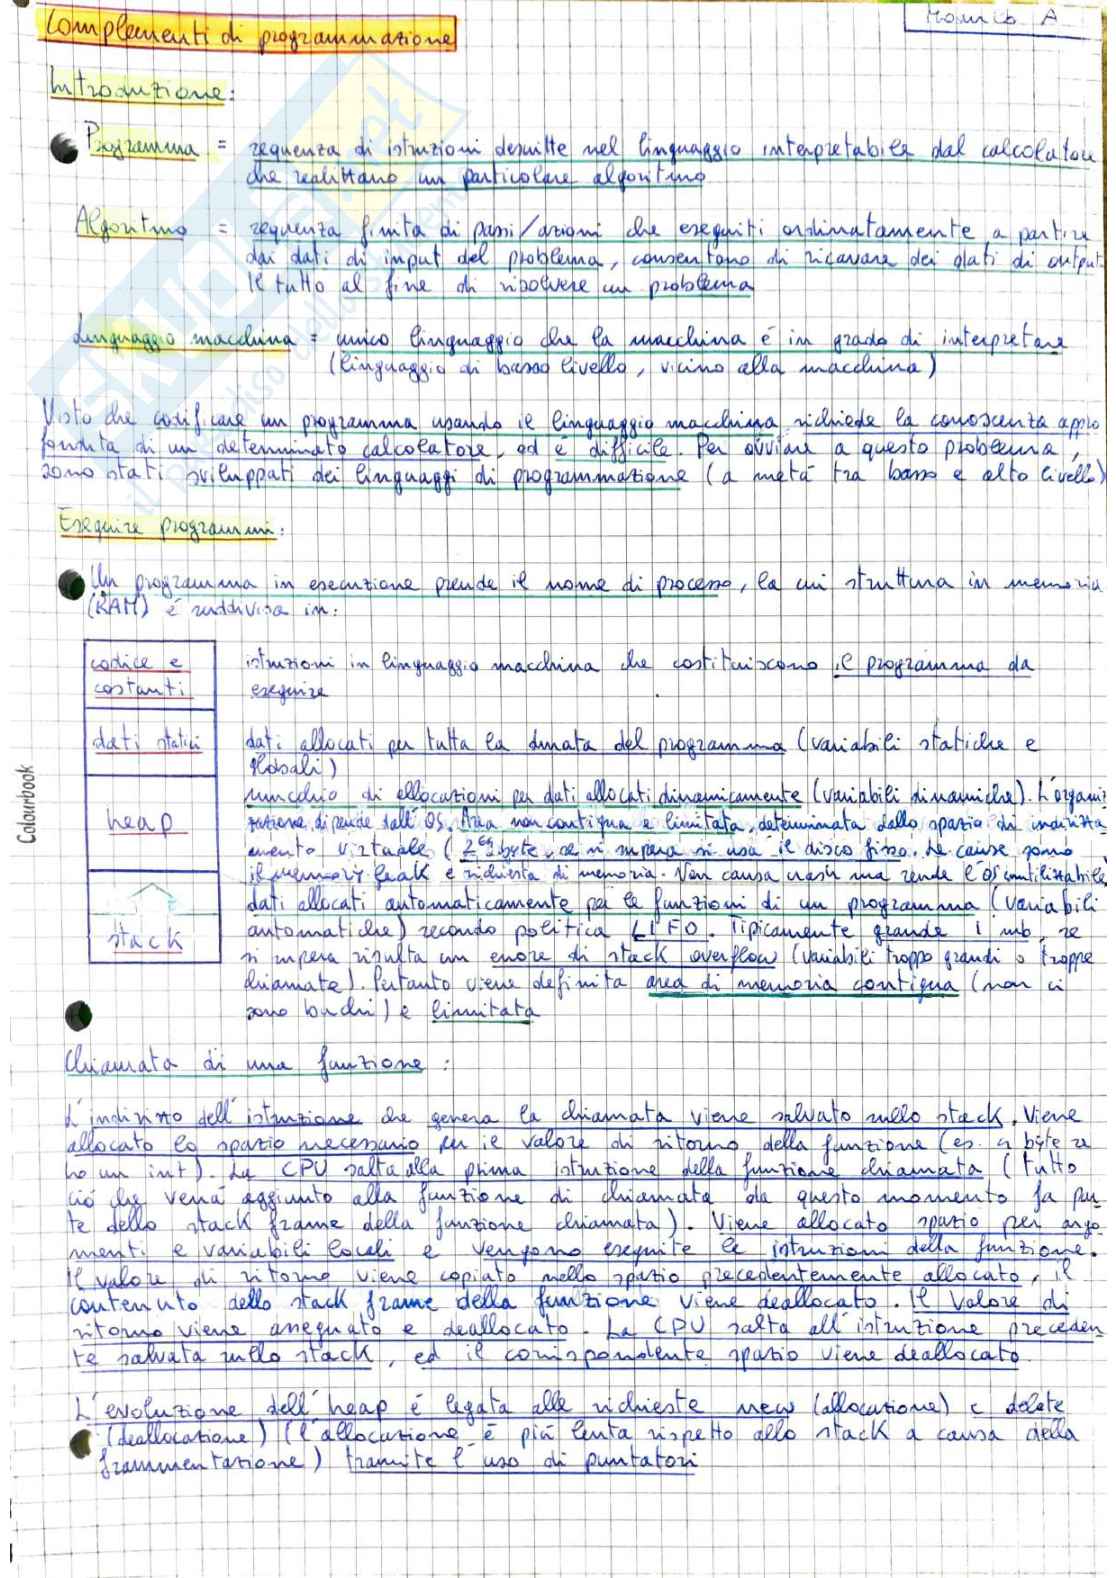 Complementi di programmazione
A
Introduzione:
Programma = sequenza di istruzioni descritte nel linguaggio interpretabile dal calcolatore
che realizzano un particolare algoritmo
Algoritmo = sequenza finita di passi/azioni che eseguiti ordinatamente a partire
dai dati di input del problema, consentono di ricavare dei dati di output
Il tutto al fine di risolvere un problema
Linguaggio macchina = unico linguaggio che la macchina è in grado di interpretare
(linguaggio di basso livello, vicino alla macchina)
Visto che codificare un programma usando il linguaggio macchina richiede la conoscenza appro
fondita di un determinato calcolatore, ed è difficile. Per ovviare a questo problema,
sono stati sviluppati dei linguaggi di programmazione (a metà tra basso e alto livello)
Eseguire programmi:
Un programma in esecuzione prende il nome di processo, la cui struttura in memoria
(RAM) è suddivisa in:
codice e
costanti
istruzioni in linguaggio macchina che costituiscono il programma da
eseguire
dati statici
dati allocati per tutta la durata del programma (variabili statiche e
globali)
heap
mucchio di allocazioni per dati allocati dinamicamente (variabili dinamiche). L'organiz
zazione dipende dall'OS. Area non contigua e limitata, determinata dallo spazio di indirizza
mento virtuale (2^64 byte, se si supera si usa il disco fisso. Le cause sono
il memory leak e richiesta di memoria. Non causa crash ma rende l'OS inutilizzabile
stack
dati allocati automaticamente per le funzioni di un programma (variabili
automatiche) secondo politica LIFO. Tipicamente grande 1 mb, se
si supera risulta un errore di stack overflow (variabili troppo grandi o troppe
chiamate). Pertanto viene definita area di memoria contigua (non ci
sono buchi) e limitata
Chiamata di una funzione:
L'indirizzo dell'istruzione che genera la chiamata viene salvato sullo stack. Viene
allocato lo spazio necessario per il valore di ritorno della funzione (es. 4 byte se
ho un int). La CPU salta alla prima istruzione della funzione chiamata (tutto
ciò che verrà aggiunto alla funzione di chiamata da questo momento fa par
te dello stack frame della funzione chiamata). Viene allocato spazio per argo
menti e variabili locali e vengono eseguite le istruzioni della funzione.
Il valore di ritorno viene copiato nello spazio precedentemente allocato, il
contenuto dello stack frame della funzione viene deallocato. Il valore di
ritorno viene assegnato e deallocato. La CPU salta all'istruzione preceden
te salvata sullo stack, ed il corrispondente spazio viene deallocato.
L'evoluzione dell'heap è legata alle richieste new (allocazione) e delete
(deallocazione) (l'allocazione è più lenta rispetto allo stack a causa della
frammentazione) tramite l'uso di puntatori
Colourbook